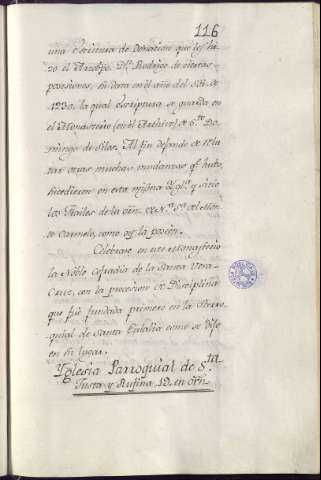 116
una escritura de Donacion que les hi-
zo el Arzobpo. Dn. Rodrigo de ciertas
posesiones, su data en el año del Sr. de
1230. la qual escriptura se guarda en
el Monasterio (en el Archivo) de Sto. Do-
mingo de Silos. Al fin dejando de rela-
tar otras muchas mudanzas qe. hubo,
sucedieron en esta misma Ygla. y sitio
los frailes de la orn. de Na. Sa. del Mon-
te Carmelo, como oy la poseen.
Celebrase en este Monasterio
la Noble cofradia de la Santa Vera-
Cruz, con la procesion de Disciplina
que fue fundada primero en la Parro-
quial de Santa Eulalia como se dijo
en su lugar.
Yglesia Parroquial de Sta.
Justa y Rufina, 19. en orn.